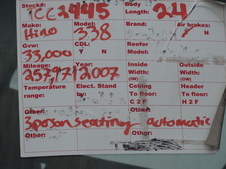 Stock#: ICC2445 Body Length: 24
Make: Hino Model: 338 Brand: Air brakes: Y N
Gvw: 33,000 CDL: Y N Reefer Model:
Mileage: 257,971 Year: 2007 Inside Width: (IW) Outside Width: (OW)
Temperature range: Elect. Stand by: Y ? Ceiling To floor: C 2 F Header To floor: H 2 F
Other:
3 person seating automatic
Other: Other: